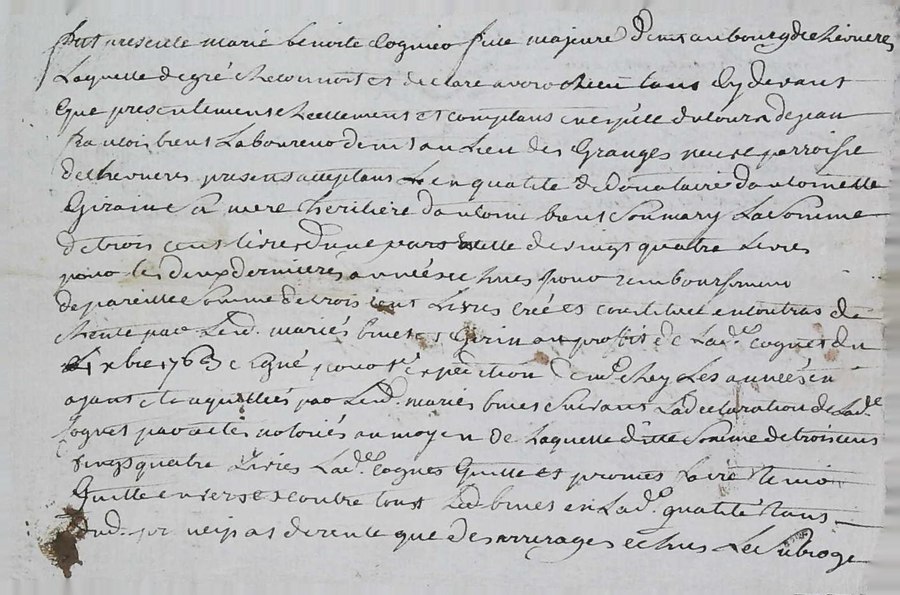 fut presente marie benoite Cognier fille majeure demt au bourg de chevrieres
Laquelle de gré Reconnoit et declare avoir Receu tans Cy devant
que presentement Reellement et comptans en espece du cours de jean
francois brunt Laboureur demt au Lieu des Granges neuve parroisse
de chevrieres presens acceptans en qualité de donataire d'antoinette
Girin Sa mere heritiere d'antoine brunt Son mary La Somme
de trois cens livres d'une part et celle de vingt quatre Livres
pour les deux dernieres années echues pour remboursement
de pareille Somme de trois cent Livres créé et constitué en contrat de
Rente par Led. mariés brunt et Girin au proffit de Lad. Cognet du
xbre 1763 signé pour expedition les années en
ayant eté aquittées par Led. mariés brunt Suivant La declaration de Lad.
Cognet par actes notoriés au moyen de Laquelle ditte Somme de trois cens
vingt quatre Livres Lad. Cognet Quitte et promet faire tenir
Quitte envers et contre tous Led. brunt en Lad. qualité tans
dud. por neipas de rente que des arrerages echus Le Subroge